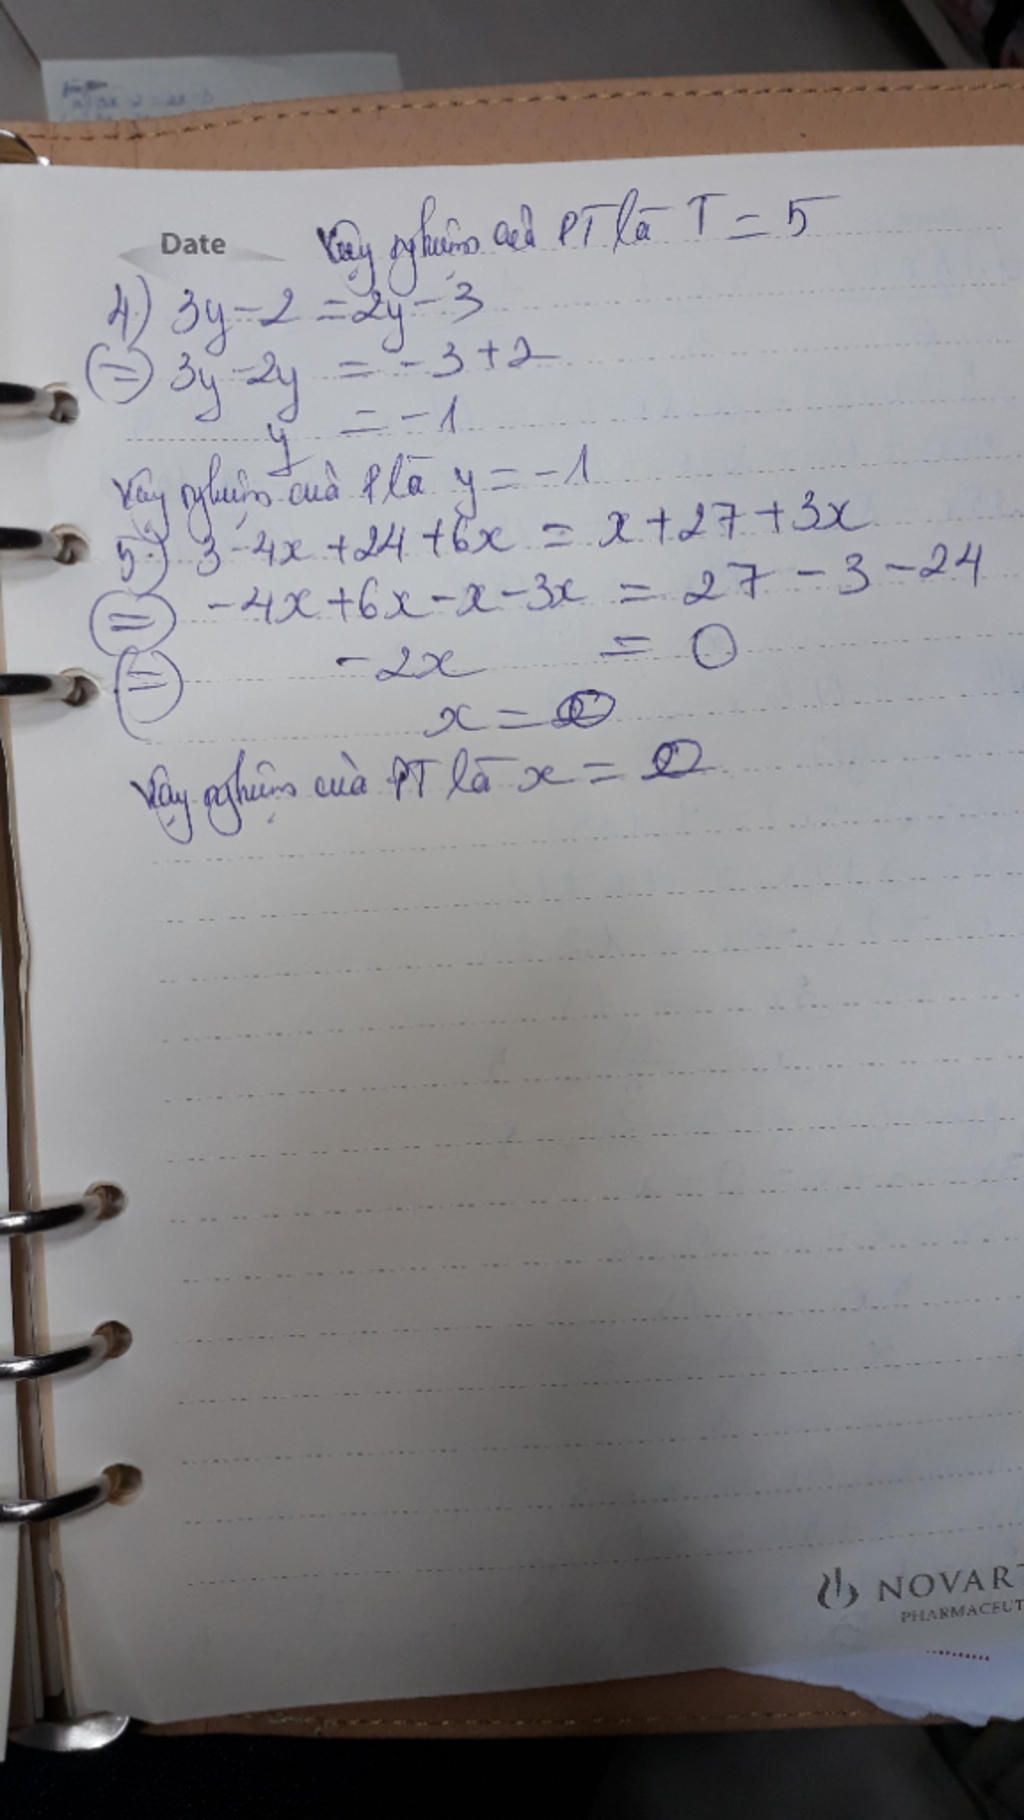 Date Vậy nghiệm của PT là T = 5
4.) 3y - 2 = 2y - 3
(=) 3y - 2y = - 3 + 2
y = - 1
Vậy nghiệm của P là y = - 1
5.) 3 - 4x + 24 + 6x = x + 27 + 3x
(=) - 4x + 6x - x - 3x = 27 - 3 - 24
(=) - 2x = 0
x = 0
Vậy nghiệm của PT là x = 0
NOVART
PHARMACEUT